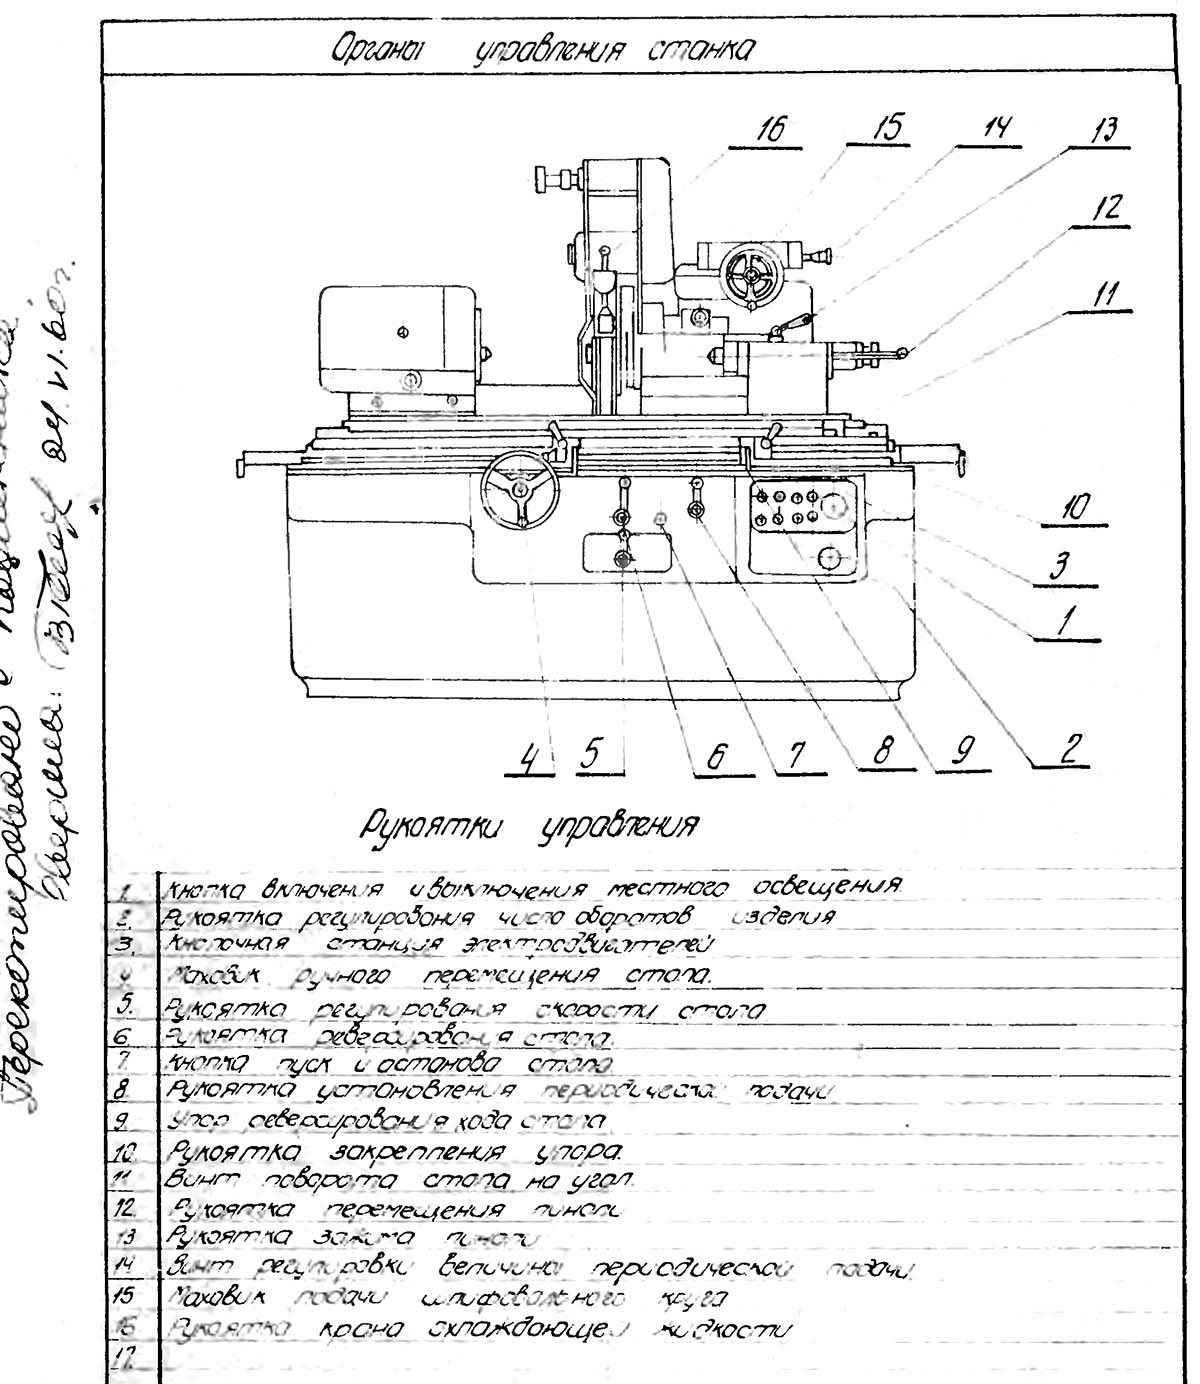 Органы управления станка
16 15 14 13
12
11
10
3
1
4 5 6 7 8 9 2
Рукоятки управления
1. Кнопка включения и выключения местного освещения.
2. Рукоятка регулирования число оборотов изделия
3. Кнопочная станция электродвигателей
4 Маховик ручного перемещения стола.
5. Рукоятка регулирования скорости стола
6 Рукоятка реверсирования стола.
7 Кнопка пуск и останова стола
8 Рукоятка установления периодической подачи
9 Упор реверсирования хода стола
10. Рукоятка закрепления упора.
11 Винт поворота стола на угол.
12. Рукоятка перемещения пиноли
13 Рукоятка зажима пиноли
14 Винт регулировки величины периодической подачи.
15 Маховик подачи шлифовального круга
16 Рукоятка крана охлаждающей жидкости
17.